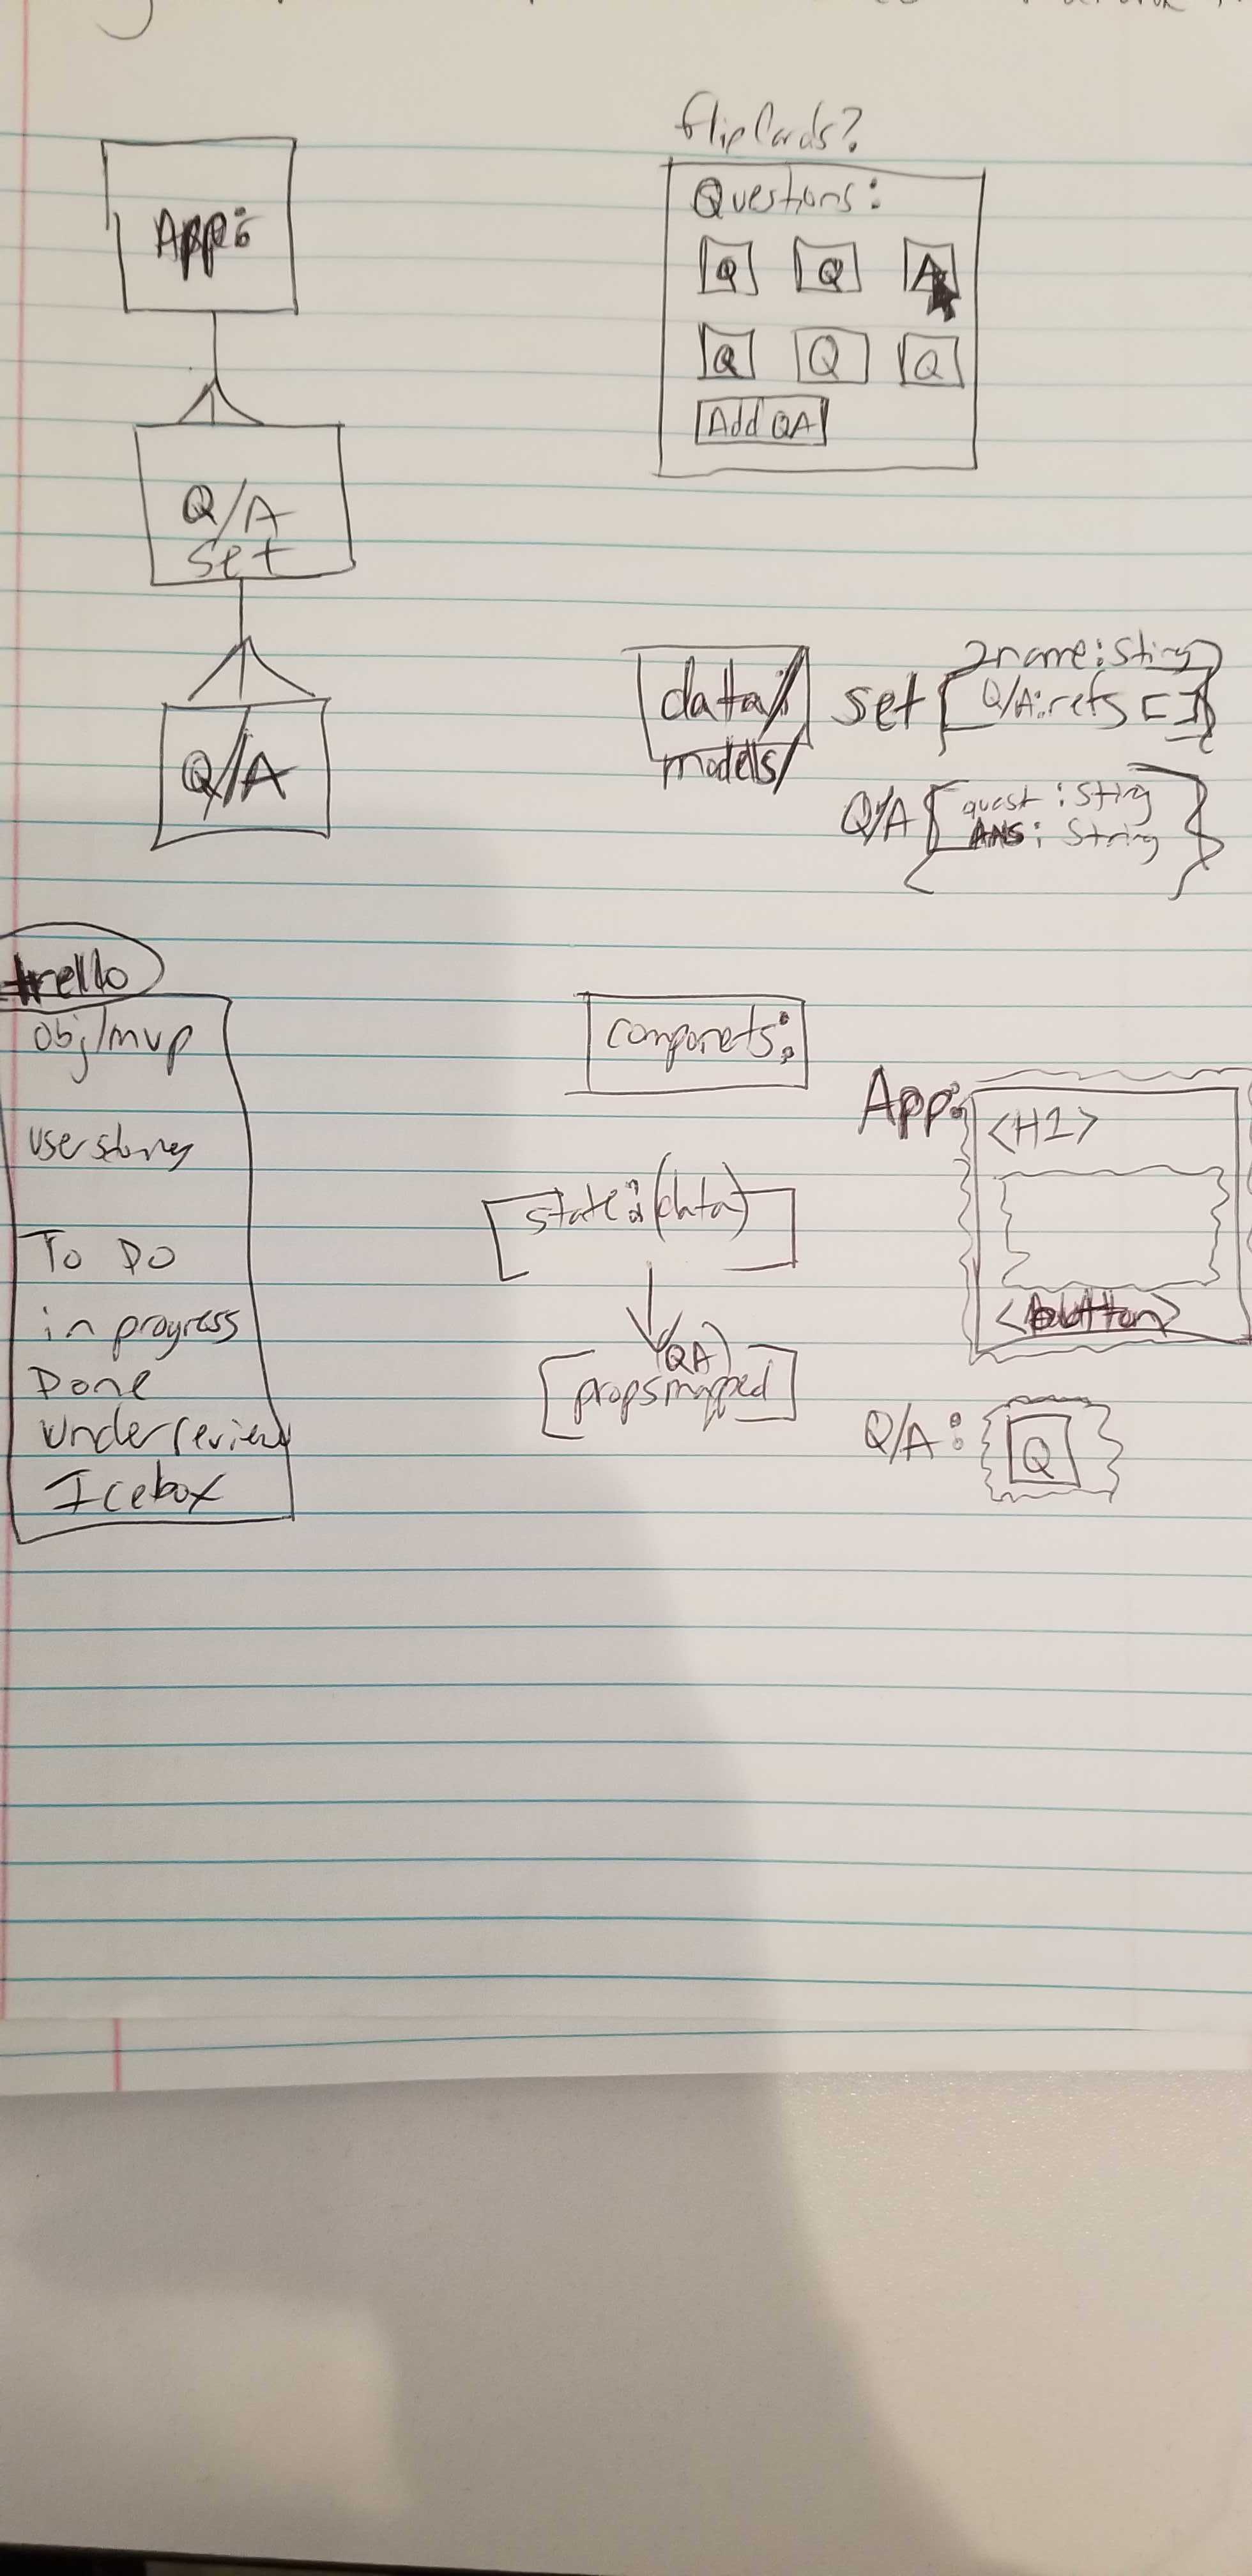 App:
flip Cards?
Questions:
Q Q A
Q Q Q
Add QA
Q/A
set
Q/A
data/
models/
set { name: String
Q/A: refs [] }
Q/A { quest: Sting
ANS: String }
trello
obj/mvp
user stories
To Do
in progress
Done
under review
Icebox
componets:
state: (data)
(QA)
props mapped
App:
<H1>
<button>
Q/A:
Q